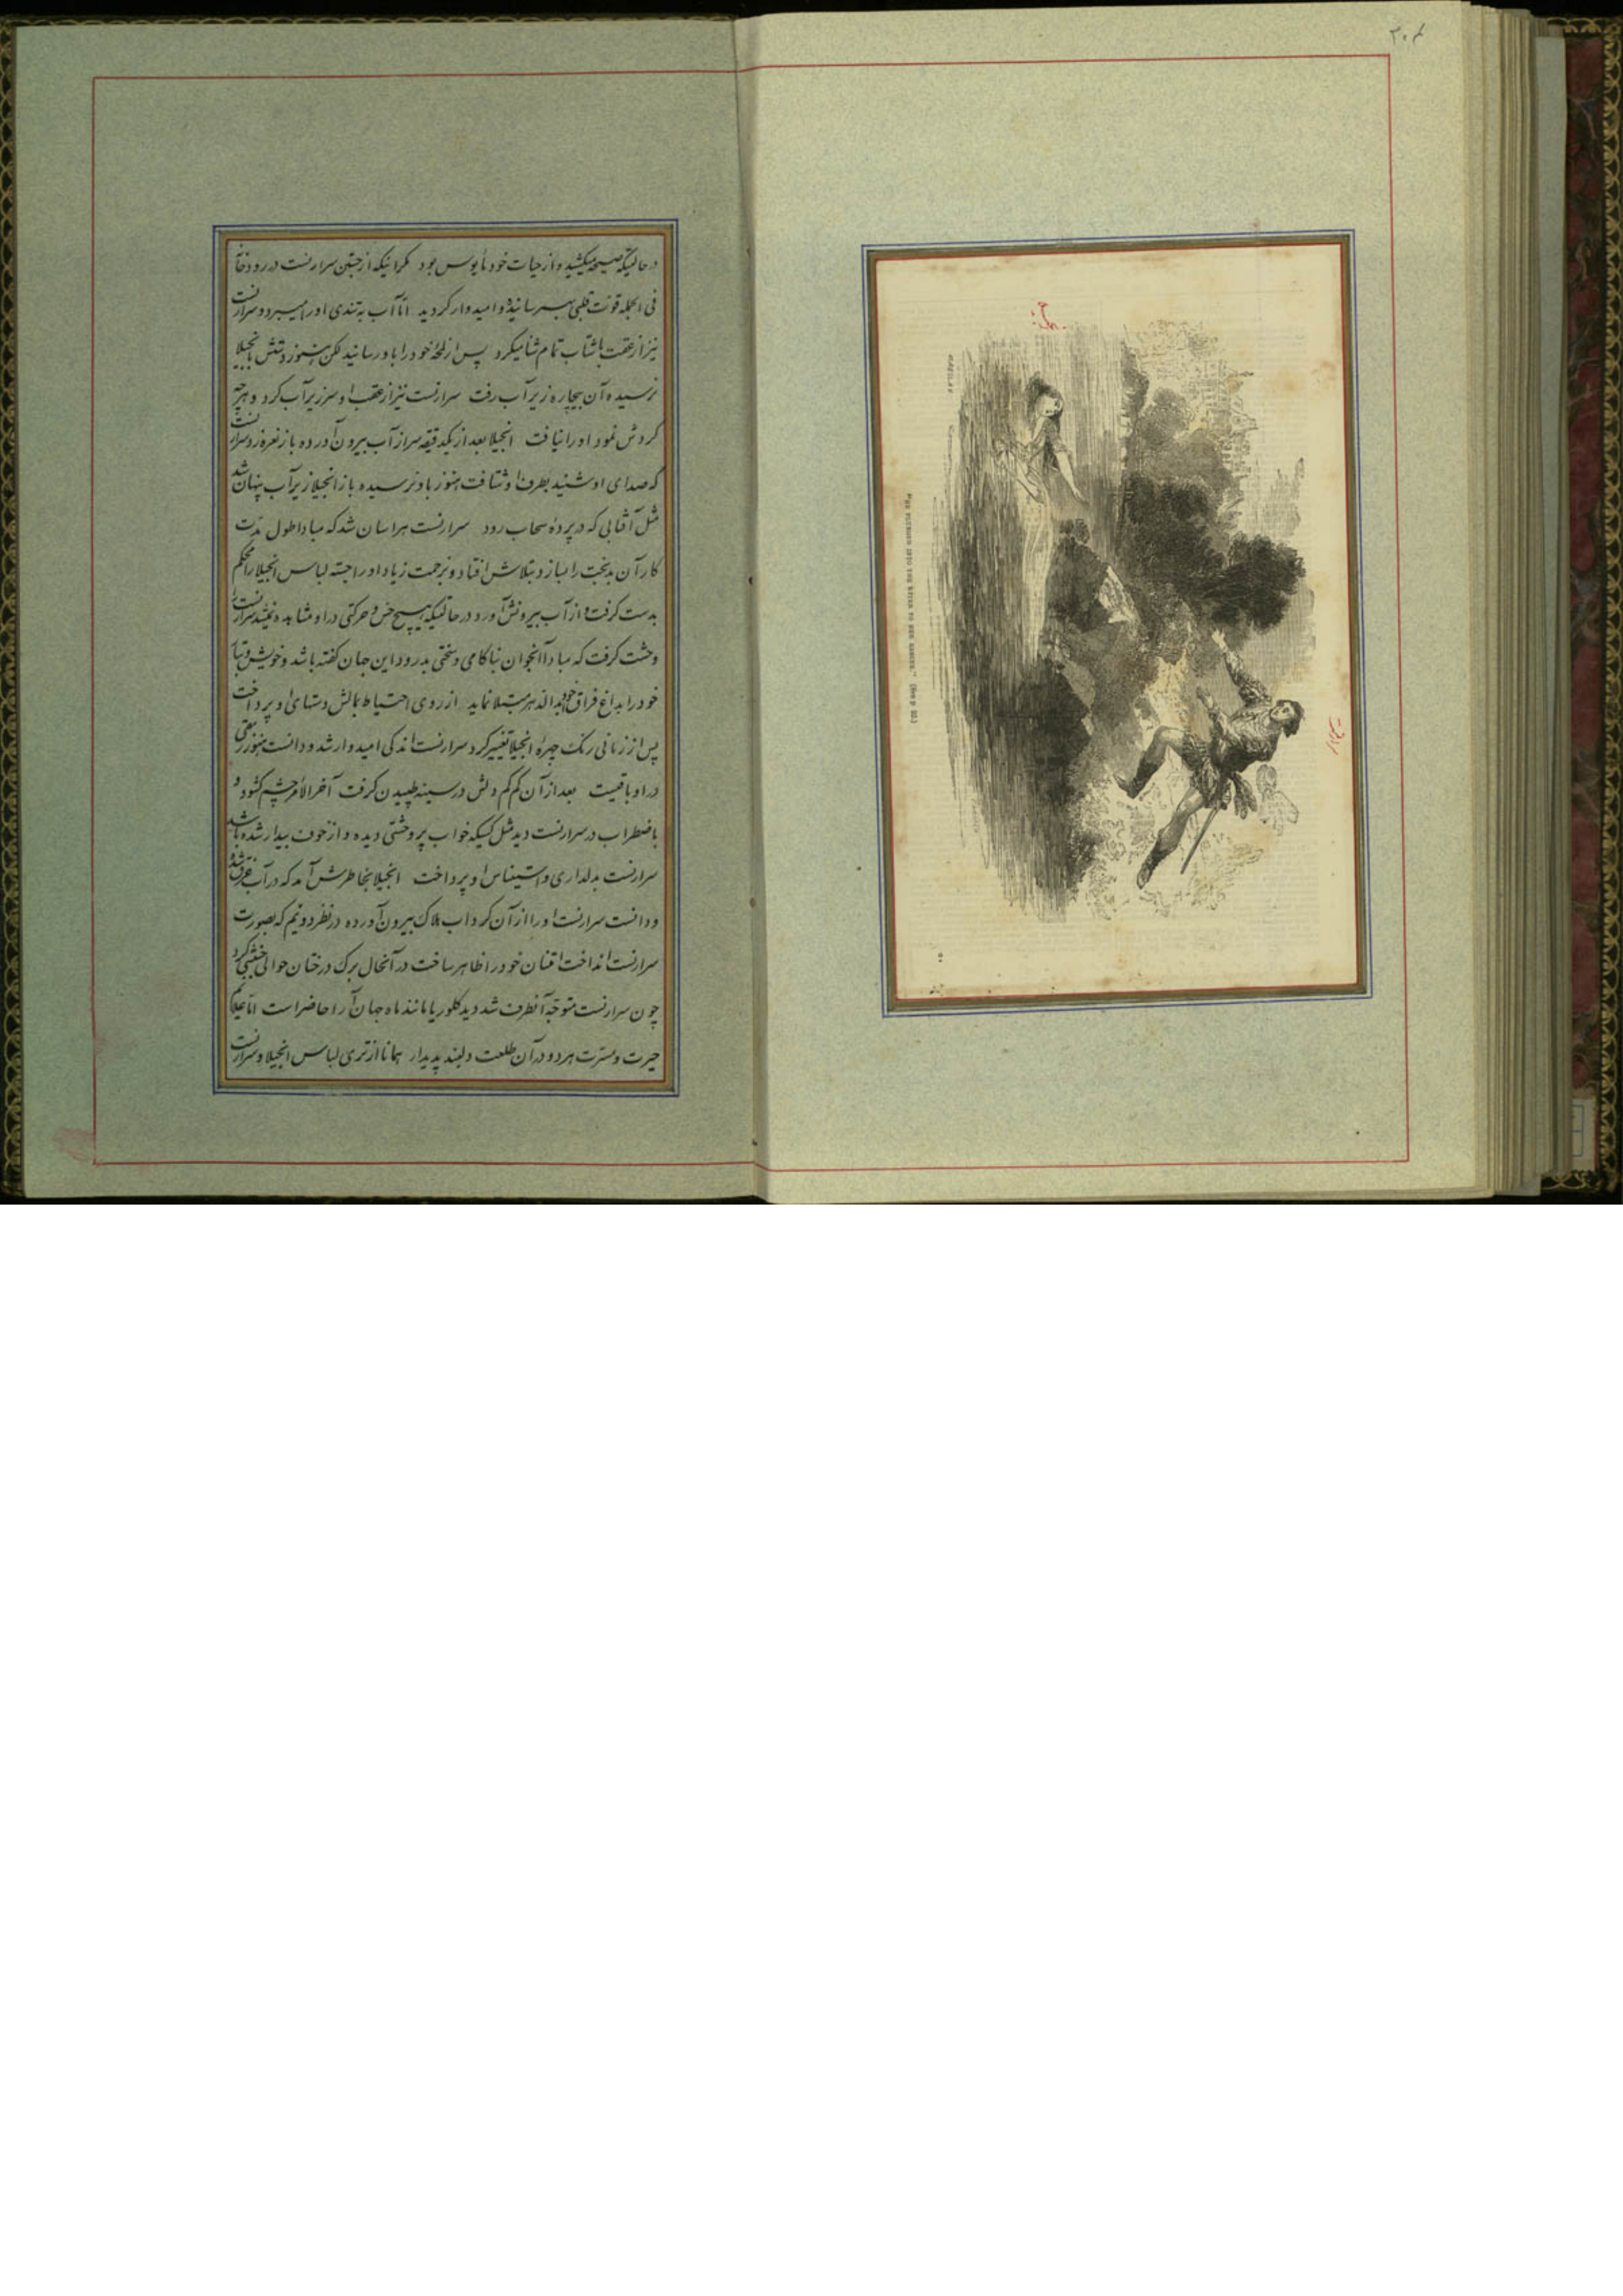 ۲۰۴
انجیلا
سرارنست
"HE PLUNGED INTO THE RIVER TO HER RESCUE." (See p 22.)
در حالتیکه صیحه میکشید و از حیات خود مأیوس بود مگر اینکه از جستن سرارنست در رودخانه
فی الجمله قوت قلبی بهم رسانیده و امیدوار گردید اما آب به تندی او را میبرد و سرارنست
نیز از عقبش با شتاب تمام شنا میکرد پس از لمحهٔ خود را باو رسانید لکن هنوز دستش بانجیلا
نرسیده آن بیچاره زیر آب رفت سرارنست نیز از عقب او سر زیر آب کرد و هر چه
گردش نمود او را نیافت انجیلا بعد از یکدقیقه سر از آب بیرون آورده باز نعره زد سرارنست
که صدای او شنید بطرف او شتافت هنوز باو نرسیده باز انجیلا زیر آب پنهان شد
مثل آفتابی که در پردهٔ سحاب رود سرارنست هراسان شد که مبادا طول مدت
کار آن بدبخت را بسازد بتلاش افتاد و بزحمت زیاد او را جسته لباس انجیلا را محکم
بدست گرفت و از آب بیرونش آورد در حالتیکه هیچ حس و حرکتی در او مشاهده نمیشد سرارنست را
وحشت گرفت که مبادا آنجوان بناکامی و سختی بدرود این جهان گفته باشد و خویش و تبار
خود را بداغ فراق خود ابدالدهر مبتلا نماید از روی احتیاط بمالش دستهای او پرداخت
پس از زمانی رنگ چهرهٔ انجیلا تغییر کرد سرارنست اندکی امیدوار شد و دانست هنوز رمقی
در او باقیست بعد از آن کم کم دلش در سینه طپیدن گرفت آخرالامر چشم گشود و
باضطراب در سرارنست دید مثل کسیکه خواب پر وحشتی دیده و از خوف بیدار شده باشد
سرارنست بدلداری و استیناس او پرداخت انجیلا بخاطرش آمد که در آب غرق شد
و دانست سرارنست او را از آن گرداب هلاک بیرون آورده در نظر دویم که بصورت
سرارنست انداخت امتنان خود را ظاهر ساخت در آنحال برگ درختان حوالی جنبشی کرد
چون سرارنست متوجه آنطرف شد دید گلوریا مانند ماه جهان آرا حاضر است اما علایم
حیرت و مسرت هر دو در آن طلعت دلبند پدیدار همانا از تری لباس انجیلا و سرارنست